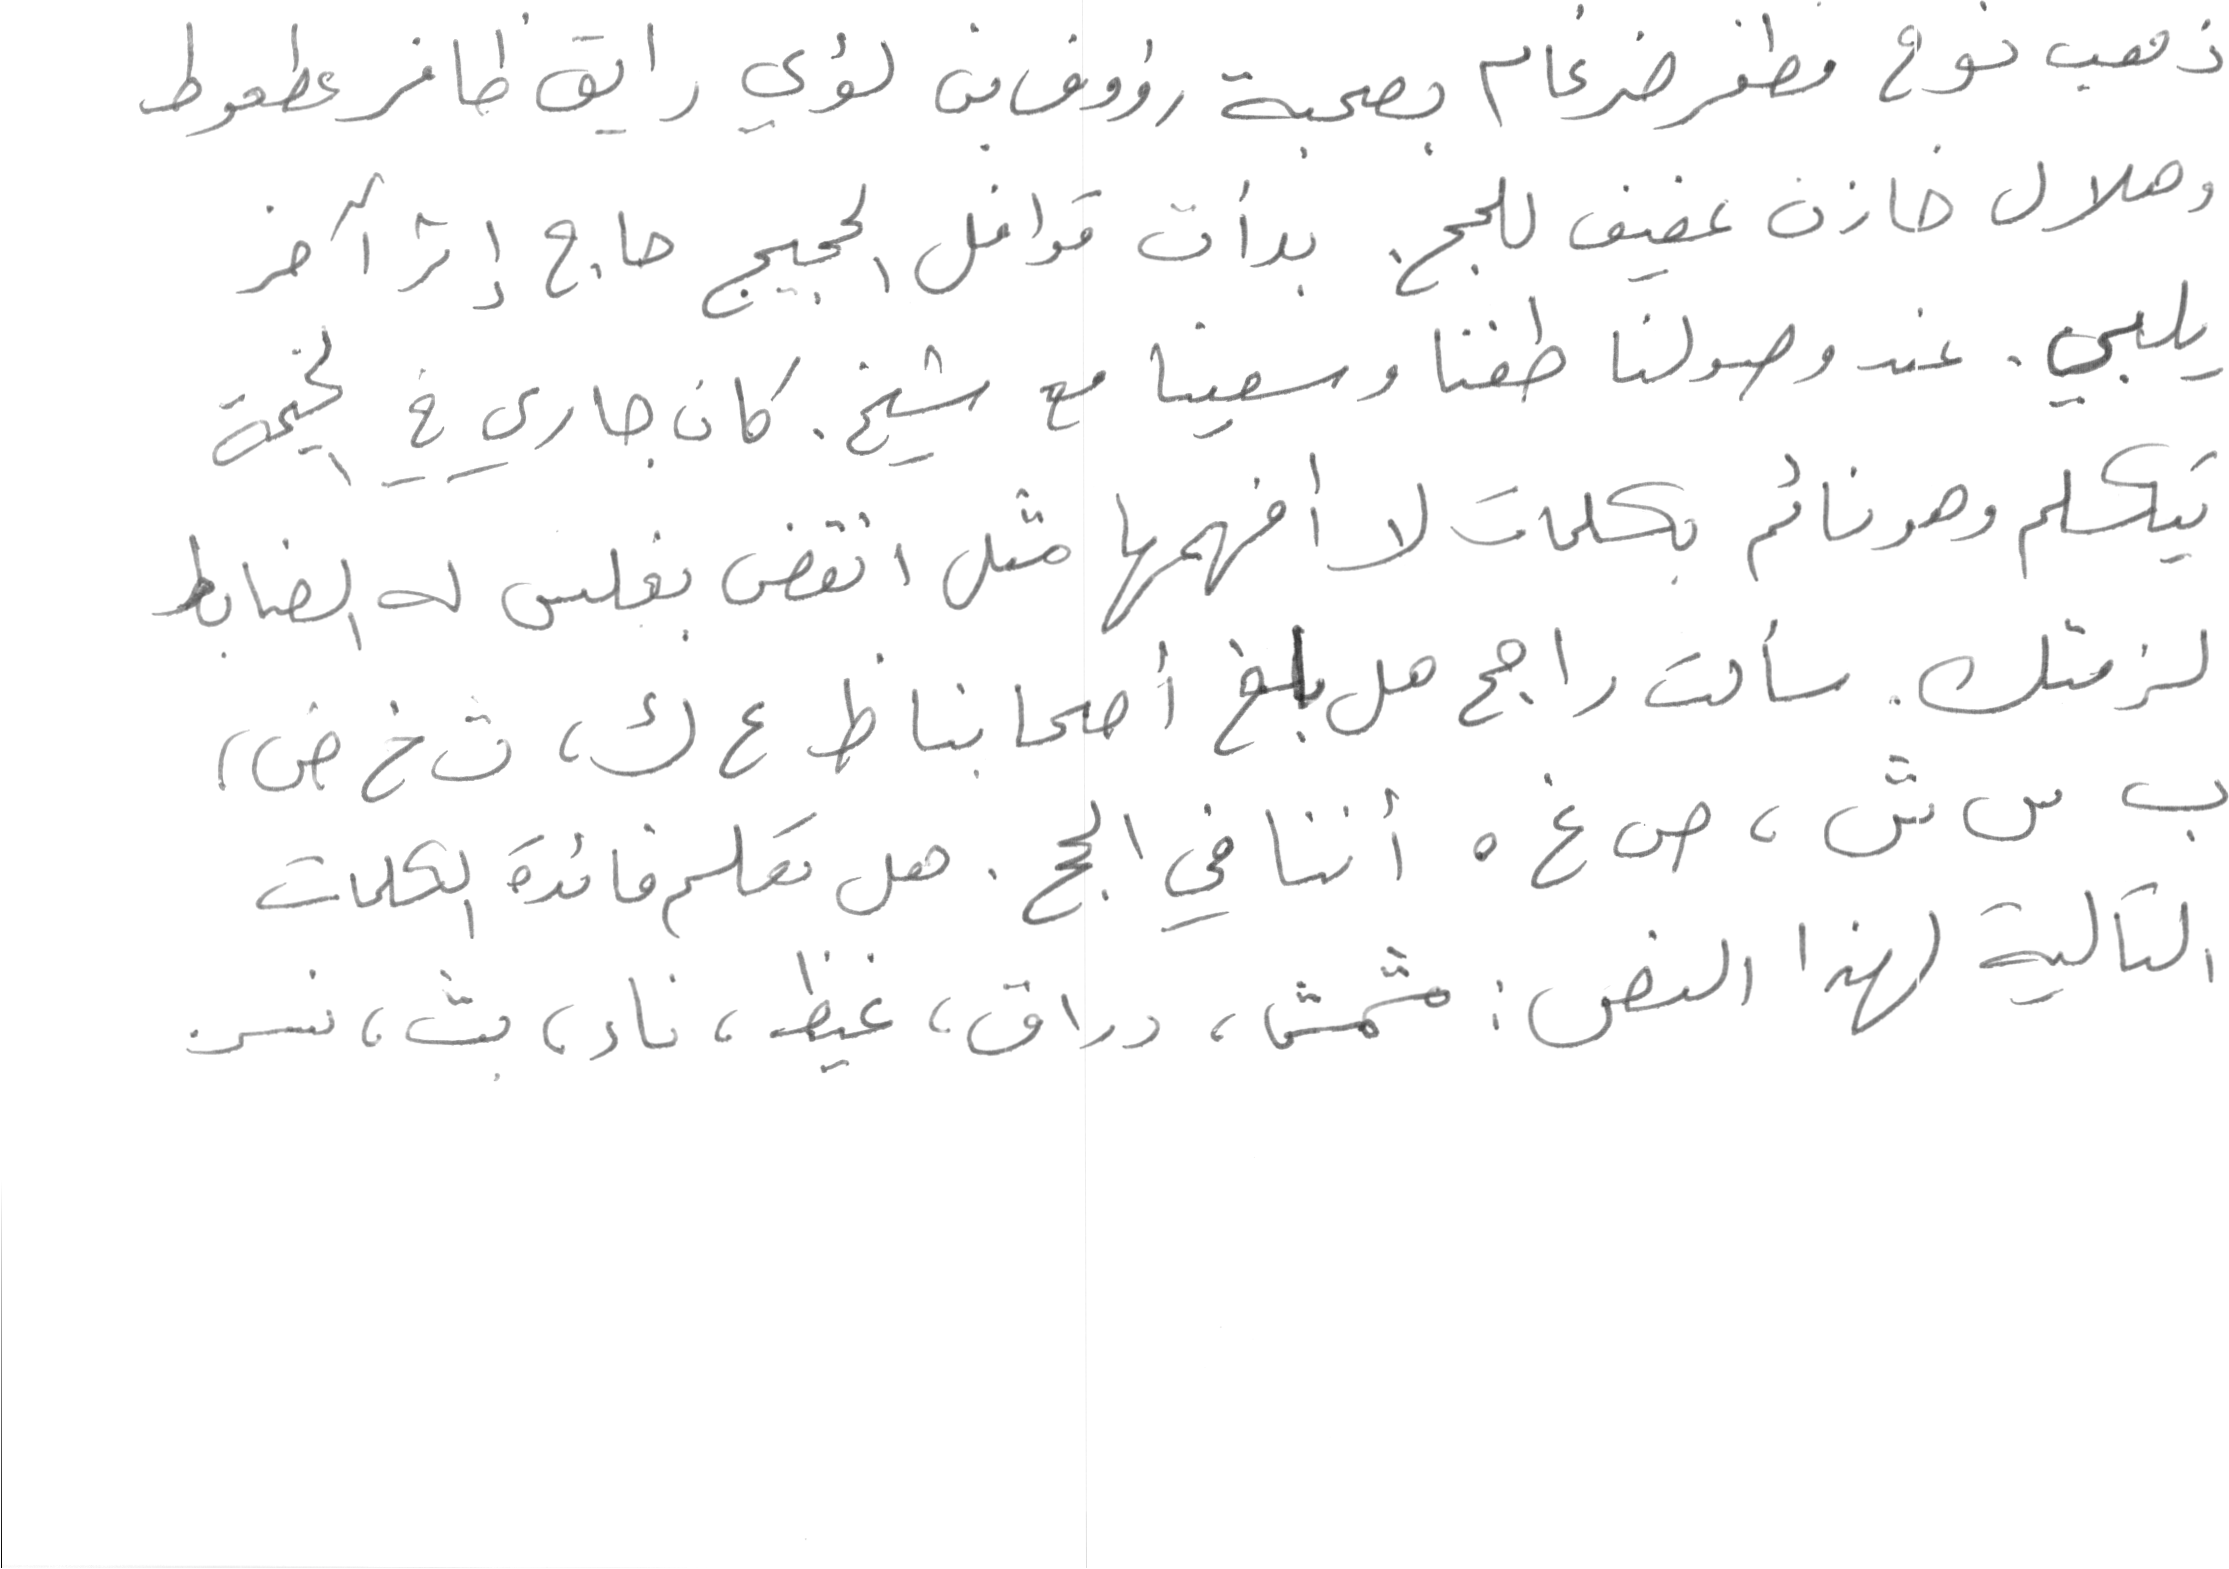 ذهب نوح مظفر ضرغام بصحبة رؤوف بن لؤي رايق ظافر عطعوط
وهلال خازن عفيف للحج. بدأت قوافل الحجيج حاج إثر آخر
يلبي. عند وصولنا طفنا وسعينا مع شيخ. كان جاري في الخيمة
يتكلم وهو نائم بكلمات لا أفهمها مثل اتقض بغلس له الضابط
لزمتك. سألت راجح هل بلغ أصحابنا ظ ع ك، ث خ ض،
ب س ش، ص غ ه أننا في الحج. هل تعلم فائدة الكلمات
التالية لهذا النص: مشمش، دراق، غيظ، ناد، بث، نسر